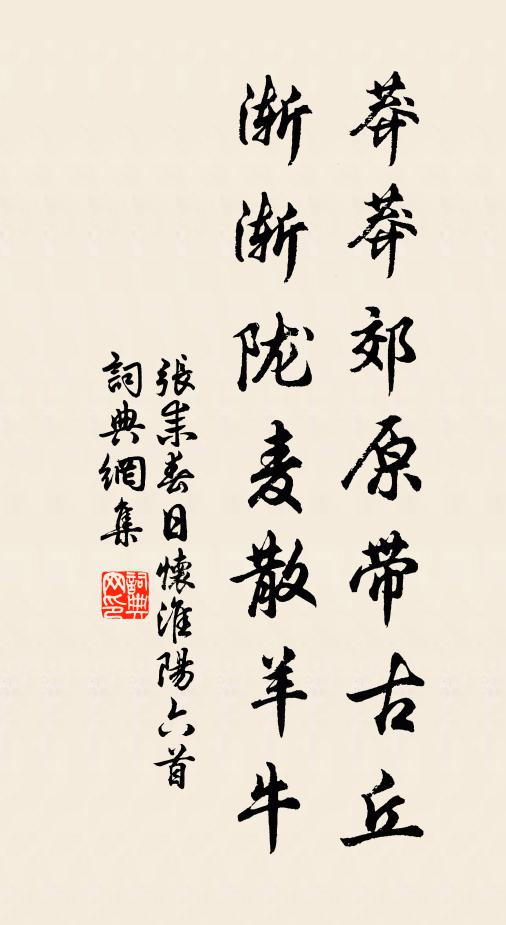 莽莽郊原带古丘
渐渐陇麦散羊牛
張耒春日懷淮陽六首
詞典網集
詞典网印